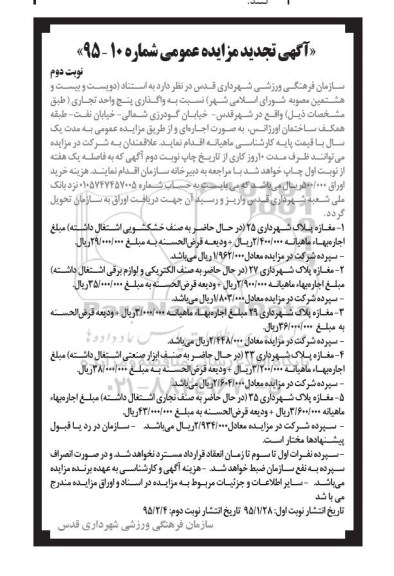 «آگهی تجدید مزایده عمومی شماره ۱۰ - ۹۵»
نوبت دوم
سازمان فرهنگی ورزشی شهرداری قدس در نظر دارد به استناد (دویست و بیست و
هشتمین مصوبه شورای اسلامی شهر) نسبت به واگذاری پنج واحد تجاری (طبق
مشخصات ذیل) واقع در شهرقدس- خیابان گودرزی شمالی- خیابان نفت- طبقه
همکف ساختمان اورژانس، به صورت اجاره‌ای و از طریق مزایده عمومی به مدت یک
سال با قیمت پایه کارشناسی ماهیانه اقدام نماید. علاقمندان به شرکت در مزایده
می‌توانند ظرف مدت ۱۰روز کاری از تاریخ چاپ نوبت دوم آگهی که به فاصله یک هفته
از نوبت اول چاپ خواهد شد با مراجعه به دبیرخانه سازمان اقدام نمایند. هزینه خرید
اوراق ۵۰۰/۰۰۰ریال می‌باشد که می‌بایست به حساب شماره ۰۱۰۵۷۴۷۴۵۷۰۰۵ نزد بانک
ملی شعبه شهرداری قدس واریز و رسید آن جهت دریافت اوراق به سازمان تحویل
گردد.
۱- مغازه پلاک شهرداری ۲۵ (در حال حاضر به صنف خشکشویی اشتغال داشته) مبلغ
اجاره‌بهاء ماهیانه ۲/۴۰۰/۰۰۰ریال + ودیعه قرض‌الحسنه به مبلغ ۲۹/۰۰۰/۰۰۰ریال.
- سپرده شرکت در مزایده معادل ۱/۹۶۲/۰۰۰ ریال می‌باشد.
۲- مغازه پلاک شهرداری ۲۷ (در حال حاضر به صنف الکتریکی و لوازم برقی اشتغال داشته)
مبلغ اجاره‌بهاء ماهیانه ۲/۹۰۰/۰۰۰ریال + ودیعه قرض‌الحسنه به مبلغ ۳۵/۰۰۰/۰۰۰ریال.
- سپرده شرکت در مزایده معادل ۱/۸۰۳/۰۰۰ریال می‌باشد.
۳- مغازه پلاک شهرداری ۲۹ مبلغ اجاره‌بهاء ماهیانه ۳/۰۰۰/۰۰۰ریال + ودیعه قرض‌الحسنه
به مبلغ ۳۶/۰۰۰/۰۰۰ریال.
- سپرده شرکت در مزایده معادل ۲/۴۴۸/۰۰۰ریال می‌باشد.
۴- مغازه پلاک شهرداری ۳۳ (در حال حاضر به صنف ابزار صنعتی اشتغال داشته) مبلغ
اجاره‌بهاء ماهیانه ۳/۲۰۰/۰۰۰ریال + ودیعه قرض‌الحسنه به مبلغ ۳۸/۰۰۰/۰۰۰ریال.
- سپرده شرکت در مزایده معادل ۲/۶۰۴/۰۰۰ ریال می‌باشد.
۵- مغازه پلاک شهرداری ۳۵ (در حال حاضر به صنف نجاری اشتغال داشته) مبلغ اجاره‌بهاء
ماهیانه ۳/۶۰۰/۰۰۰ریال + ودیعه قرض‌الحسنه به مبلغ ۴۳/۰۰۰/۰۰۰ریال.
- سپرده شرکت در مزایده معادل ۲/۹۳۴/۰۰۰ریال می‌باشد. - سازمان در رد یا قبول
پیشنهادها مختار است.
- سپرده نفرات اول تا سوم تا زمان انعقاد قرارداد مسترد نخواهد شد و در صورت انصراف
سپرده به نفع سازمان ضبط خواهد شد. - هزینه آگهی و کارشناسی به عهده برنده مزایده
می‌باشد. - سایر اطلاعات و جزئیات مربوط به مزایده در اسناد و اوراق مزایده مندرج
می با شد
تاریخ انتشار نوبت اول: ۹۵/۱/۲۸ تاریخ انتشار نوبت دوم: ۹۵/۲/۴
سازمان فرهنگی ورزشی شهرداری قدس